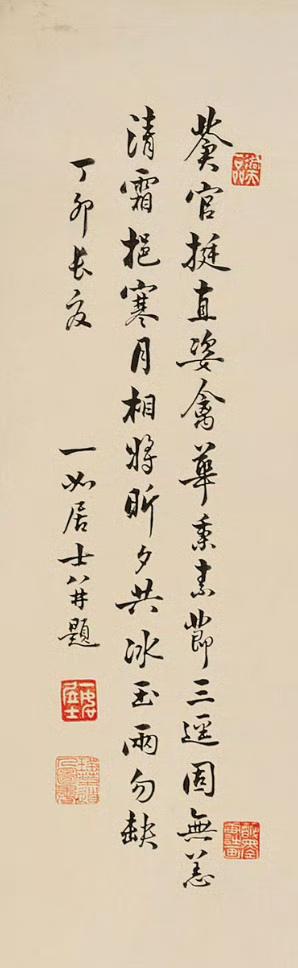 官挺直姿禽華秉素節三逕固無恙
清霜挹寒月相將昕夕共冰玉兩勿缺
丁卯長夏
一如居士并題
一如居士